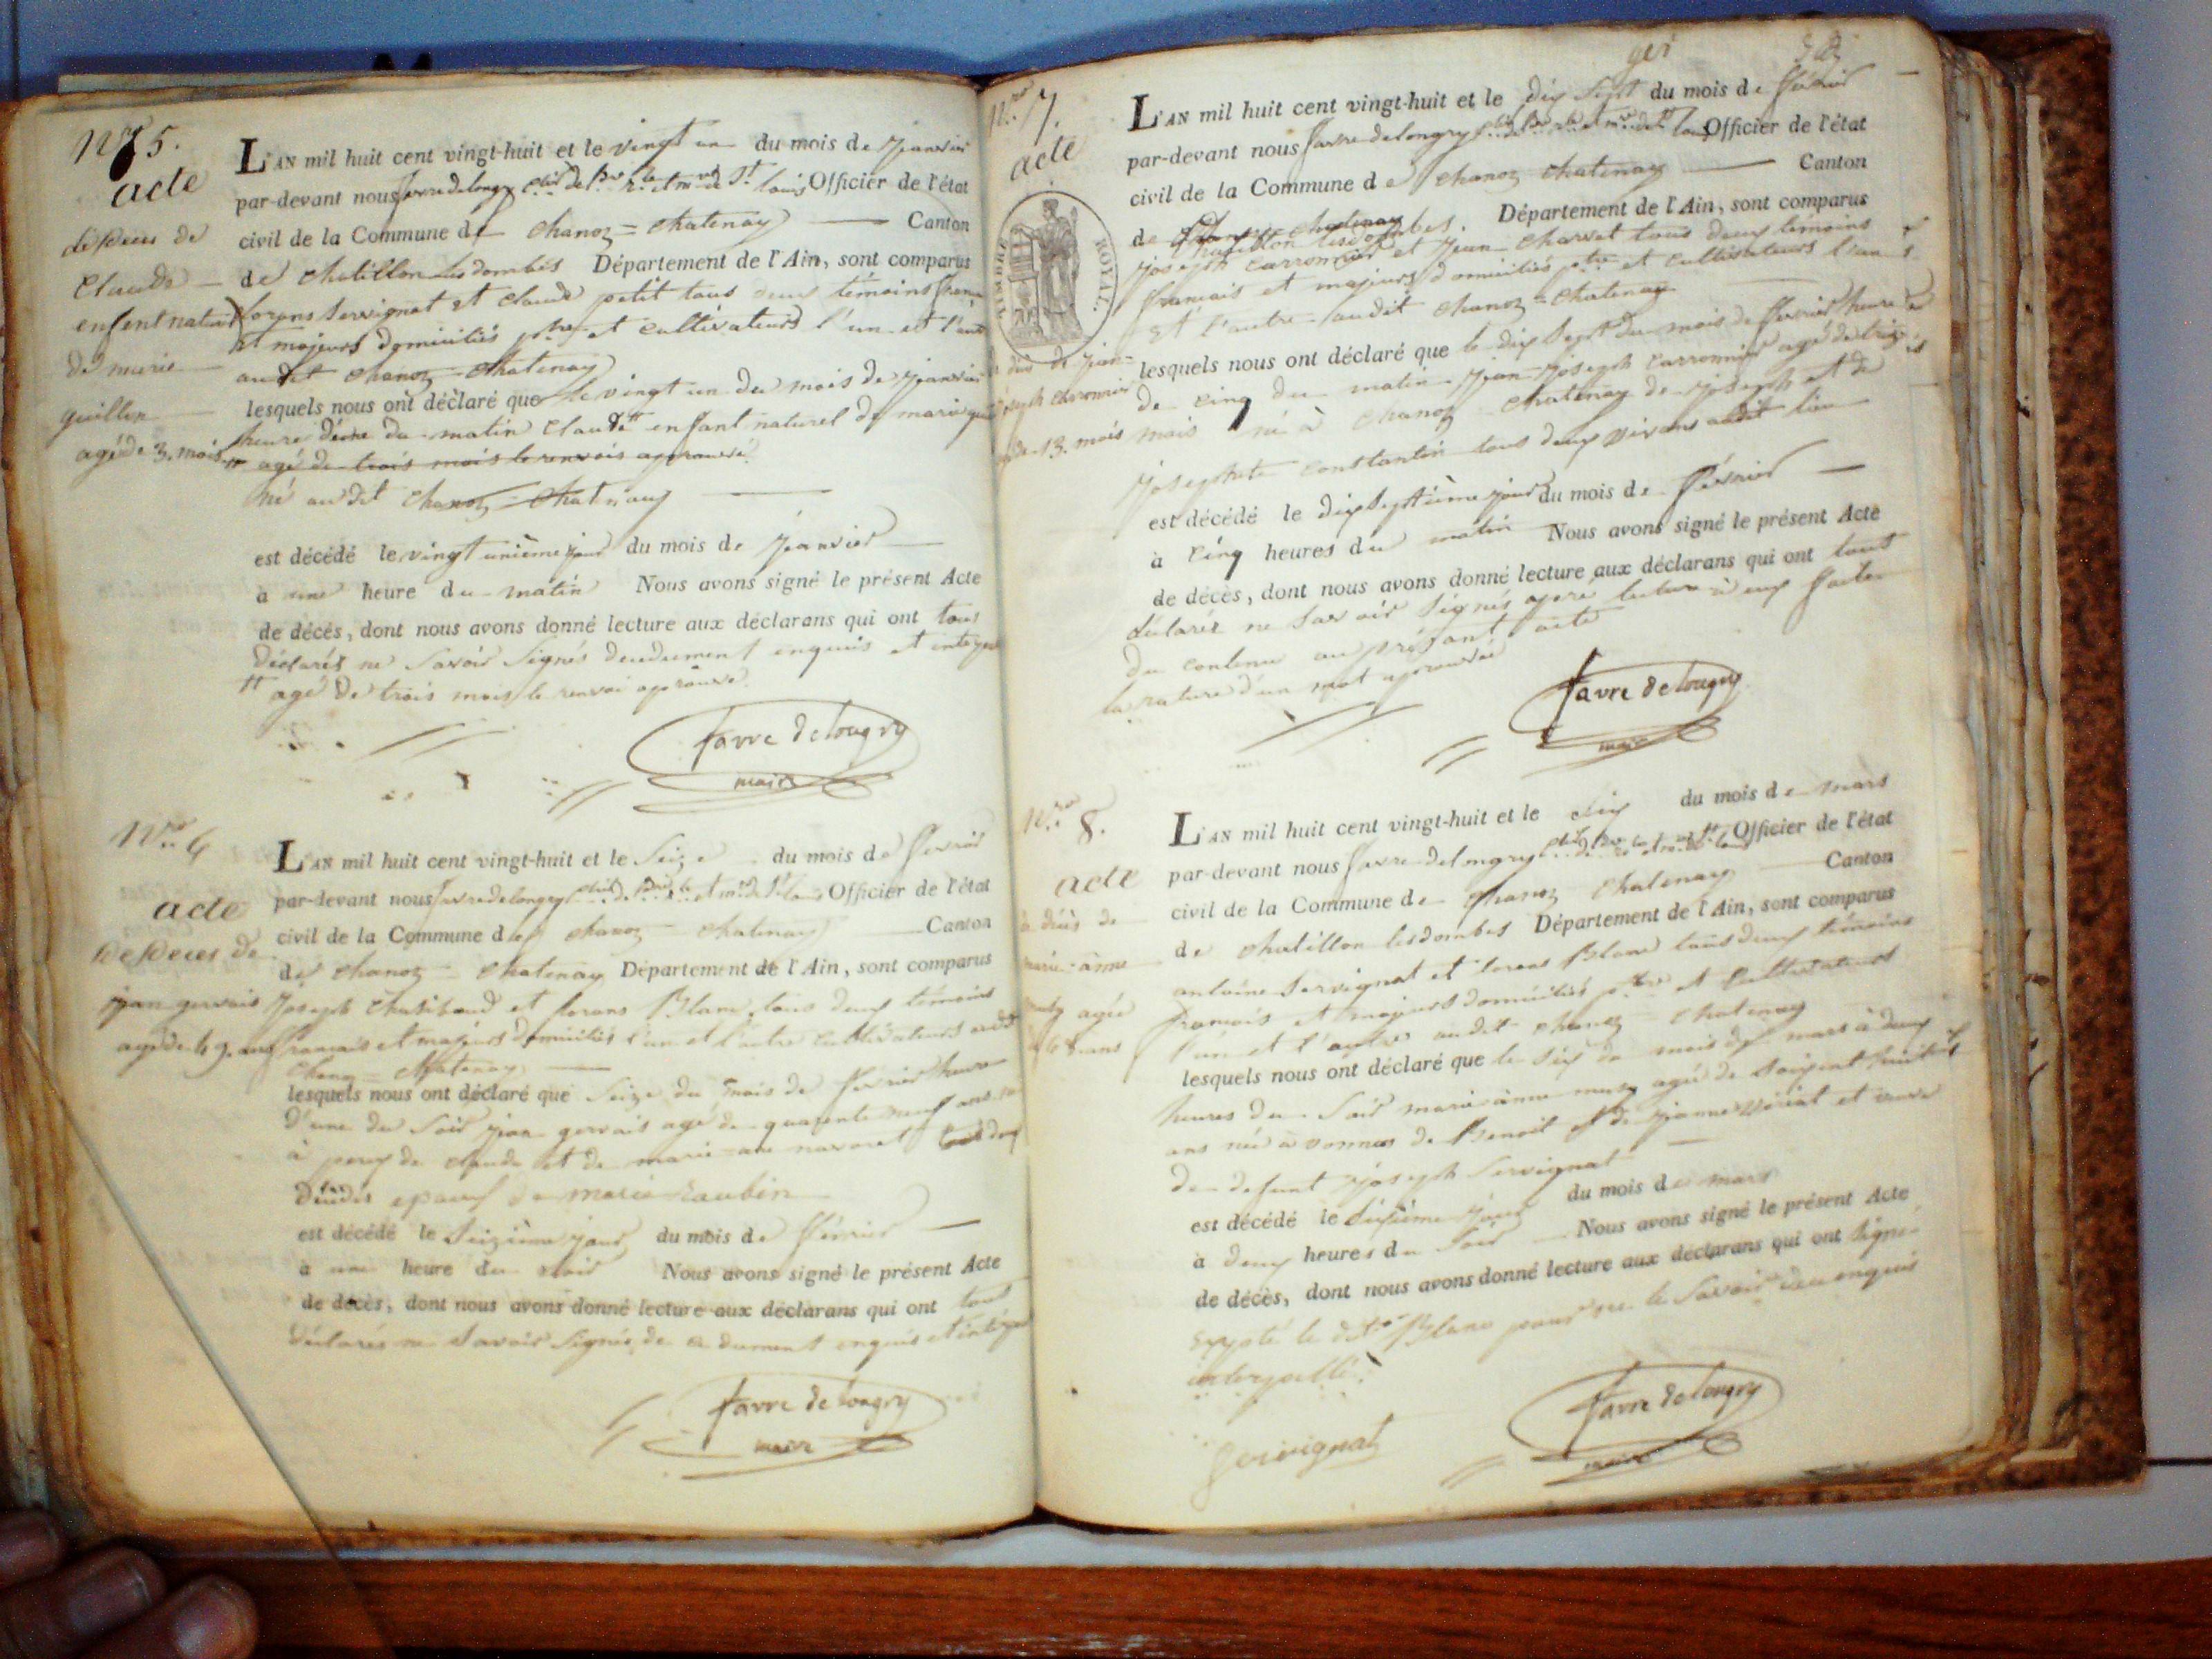 Nro 5.
acte
de deces de
Claude
enfent naturel
de marie
guillin
agé de 3. mois
L'AN mil huit cent vingt-huit et le vingt un du mois de janvier
par-devant nous favre delongry Officier de l'état
civil de la Commune de chanoz = chatenay Canton
de chatillon lesdombes Département de l'Ain, sont comparus
lorens servignat et claude petit tous deux témoins français
et majeurs domiciliés et cultivateurs l'un et l'autre
audit chanoz = chatenay
lesquels nous ont déclaré que le vingt un du mois de janvier
heure d'une du matin claude enfant naturel de marie
agé de trois mois le renvois aprouvé
né audit chanoz = chatenay
est décédé le vingt unième jour du mois de janvier
à une heure du matin Nous avons signé le présent Acte
de décès, dont nous avons donné lecture aux déclarans qui ont tous
déclarés ne savoir signés enquis et
agé de trois mois le renvoi aprouvé
favre delongry
maire
Nro 6
acte
de deces de
jean gervais
agé de 49. ans
L'AN mil huit cent vingt-huit et le seize du mois de fevrier
par-devant nous favre delongry Officier de l'état
civil de la Commune de chanoz = chatenay Canton
de chanoz = chatenay Département de l'Ain, sont comparus
joseph et lorans Blanc tous deux témoins
francais et majeurs domiciliés l'un et l'autre cultivateurs audit
chanoz = chatenay
lesquels nous ont déclaré que seize du mois de fevrier heure
d'une du soir jean gervais agé de quarente neuf ans né
à de claude et de marie tous deux
décédés epoux de marie raubin
est décédé le seizième jour du mois de février
à une heure du soir Nous avons signé le présent Acte
de décès, dont nous avons donné lecture aux déclarans qui ont tous
déclarés ne savoir signés de ce dument enquis et
favre delongry
maire
Nro 7.
acte
TIMBRE ROYAL.
de jean
joseph carronnier
13. mois
L'AN mil huit cent vingt-huit et le dix sept du mois de février
par-devant nous favre delongry Officier de l'état
civil de la Commune de chanoz chatenay Canton
de chatillon lesdombes. Département de l'Ain, sont comparus
joseph carronnier et jean charvet tous deux témoins
francais et majeurs domiciliés et cultivateurs l'un
et l'autre audit chanoz = chatenay
lesquels nous ont déclaré que le dix sept du mois de fevrier heure
de cinq du matin jean joseph carronnier agé de treize
mois né à chanoz chatenay de joseph et de
josephte constantin tous deux vivans audit lieu
est décédé le dix septième jour du mois de février
à cinq heures du matin Nous avons signé le présent Acte
de décès, dont nous avons donné lecture aux déclarans qui ont tous
déclarés ne savoir signés apré lecture à eux faite
du contenu au présant acte
la rature d'un mot aprouvée
favre delongry
maire
Nro 8.
acte
de décès de
marie anne
agée
L'AN mil huit cent vingt-huit et le six du mois de mars
par-devant nous favre delongry Officier de l'état
civil de la Commune de chanoz chatenay Canton
de chatillon lesdombes Département de l'Ain, sont comparus
antoine servignat et lorans Blanc tous deux témoins
francais et majeurs domiciliés et cultivateurs
l'un et l'autre audit chanoz = chatenay
lesquels nous ont déclaré que le six du mois de mars à deux
heures du soir marie anne agé de soixante huit
ans née à vonnas de Benoit et de jeanne et veuve
de defunt joseph servignat
est décédé le sixième jour du mois de mars
à deux heures du soir Nous avons signé le présent Acte
de décès, dont nous avons donné lecture aux déclarans qui ont signé
expté le dit Blanc pour ne le savoir de ce enquis
interpellé
Servignat
favre delongry
maire